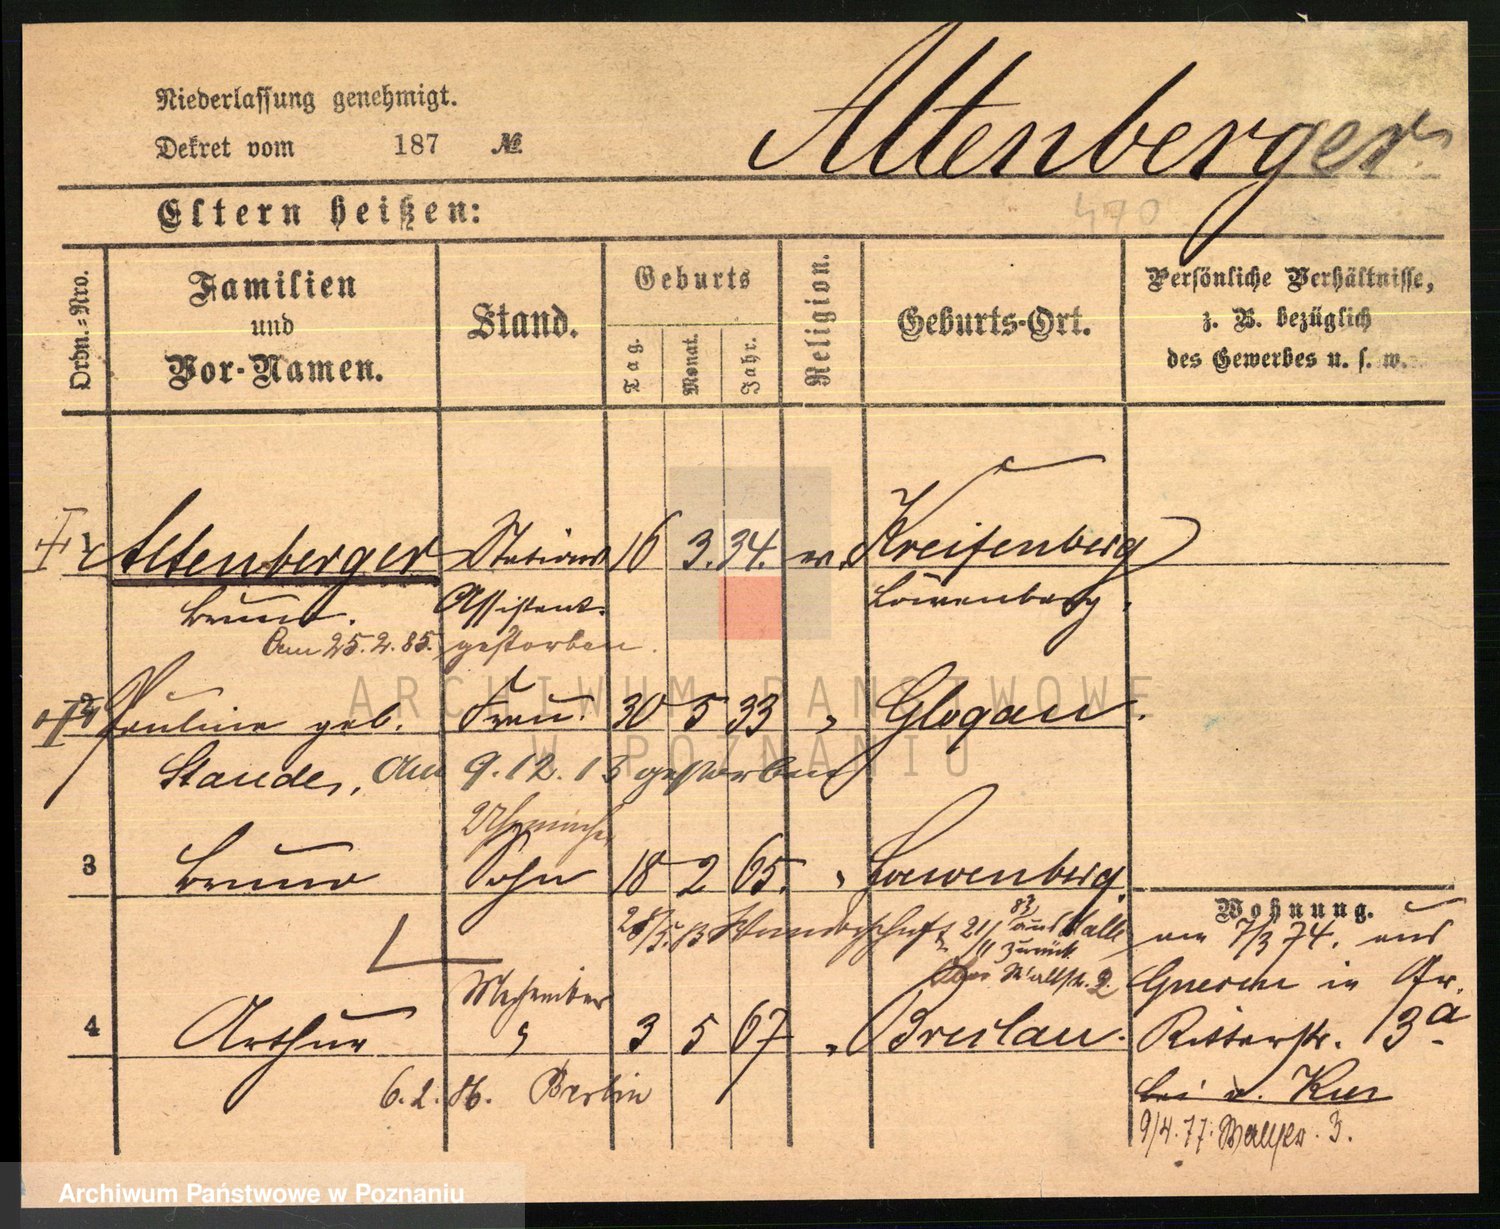 Niederlassung genehmigt.
Altenberger
Dekret vom 187 №
470
Eltern heißen:
Ordn.-Nro.
Familien und Vor-Namen.
Stand.
Geburts
Tag.
Monat.
Jahr.
Religion.
Geburts-Ort.
Persönliche Verhältnisse,
z. B. bezüglich
des Gewerbes u. s. w.
1 Altenberger Stations 16 3. 34.
Bruno. Assistent. Löwenberg.
Am 25.2.85. gestorben.
2 Pauline geb. Frau. 30 5 33 " Glogau.
Staude, Am 9.12.13 gestorben
3 Bruno Sohn 18 2 65. " Loewenberg.
Wohnung.
Wanderschaft 21/11 83 aus Halle
zurück
Wallstr. 2
am 7/3 74. aus
Gnesen in Gr.
4 Arthur " 3 5 67 " Breslau.
Ritterstr. 13a
6.2.86. Berlin
bei v. Kur
9/4.77. Wallstr. 3.
ARCHIWUM PAŃSTWOWE
W POZNANIU
Archiwum Państwowe w Poznaniu